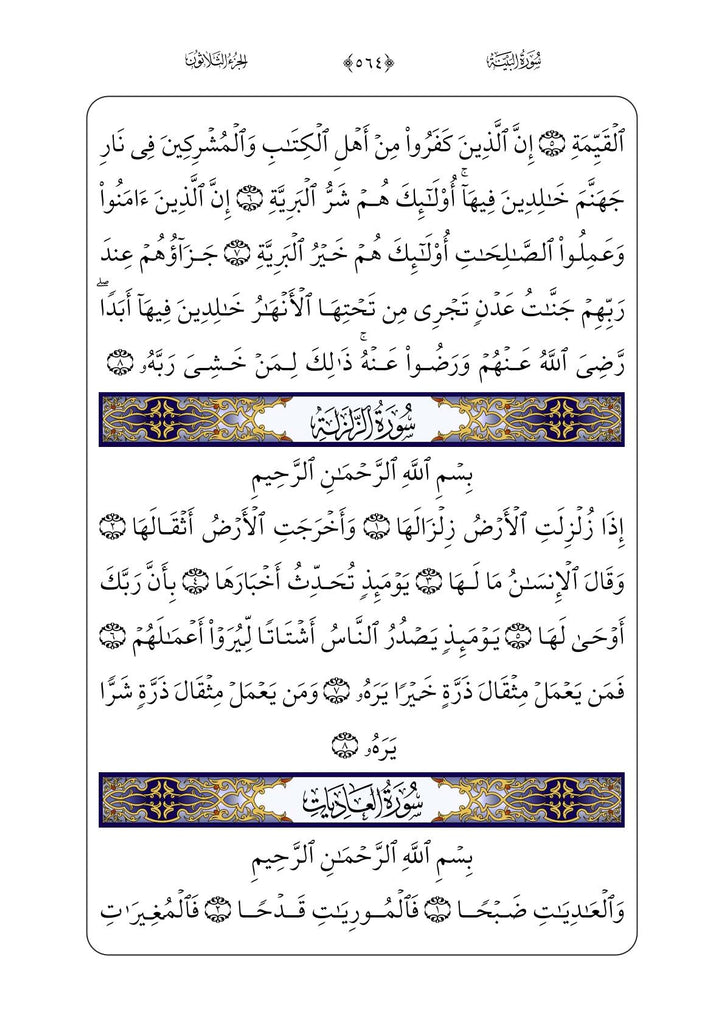 سُورَةُ البَيِّنَة ﴿٥٦٤﴾ الجُزْءُ الثَّلَاثُونَ
ٱلْقَيِّمَةِ ٥ إِنَّ ٱلَّذِينَ كَفَرُوا۟ مِنْ أَهْلِ ٱلْكِتَٰبِ وَٱلْمُشْرِكِينَ فِى نَارِ
جَهَنَّمَ خَٰلِدِينَ فِيهَآ ۚ أُو۟لَٰٓئِكَ هُمْ شَرُّ ٱلْبَرِيَّةِ ٦ إِنَّ ٱلَّذِينَ ءَامَنُوا۟
وَعَمِلُوا۟ ٱلصَّٰلِحَٰتِ أُو۟لَٰٓئِكَ هُمْ خَيْرُ ٱلْبَرِيَّةِ ٧ جَزَآؤُهُمْ عِندَ
رَبِّهِمْ جَنَّٰتُ عَدْنٍ تَجْرِى مِن تَحْتِهَا ٱلْأَنْهَٰرُ خَٰلِدِينَ فِيهَآ أَبَدًا ۖ
رَّضِىَ ٱللَّهُ عَنْهُمْ وَرَضُوا۟ عَنْهُ ۚ ذَٰلِكَ لِمَنْ خَشِىَ رَبَّهُۥ ٨
سُورَةُ الزَّلْزَلَةِ
بِسْمِ ٱللَّهِ ٱلرَّحْمَٰنِ ٱلرَّحِيمِ
إِذَا زُلْزِلَتِ ٱلْأَرْضُ زِلْزَالَهَا ١ وَأَخْرَجَتِ ٱلْأَرْضُ أَثْقَالَهَا ٢
وَقَالَ ٱلْإِنسَٰنُ مَا لَهَا ٣ يَوْمَئِذٍ تُحَدِّثُ أَخْبَارَهَا ٤ بِأَنَّ رَبَّكَ
أَوْحَىٰ لَهَا ٥ يَوْمَئِذٍ يَصْدُرُ ٱلنَّاسُ أَشْتَاتًا لِّيُرَوْا۟ أَعْمَٰلَهُمْ ٦
فَمَن يَعْمَلْ مِثْقَالَ ذَرَّةٍ خَيْرًا يَرَهُۥ ٧ وَمَن يَعْمَلْ مِثْقَالَ ذَرَّةٍ شَرًّا
يَرَهُۥ ٨
سُورَةُ العَادِيَاتِ
بِسْمِ ٱللَّهِ ٱلرَّحْمَٰنِ ٱلرَّحِيمِ
وَٱلْعَٰدِيَٰتِ ضَبْحًا ١ فَٱلْمُورِيَٰتِ قَدْحًا ٢ فَٱلْمُغِيرَٰتِ